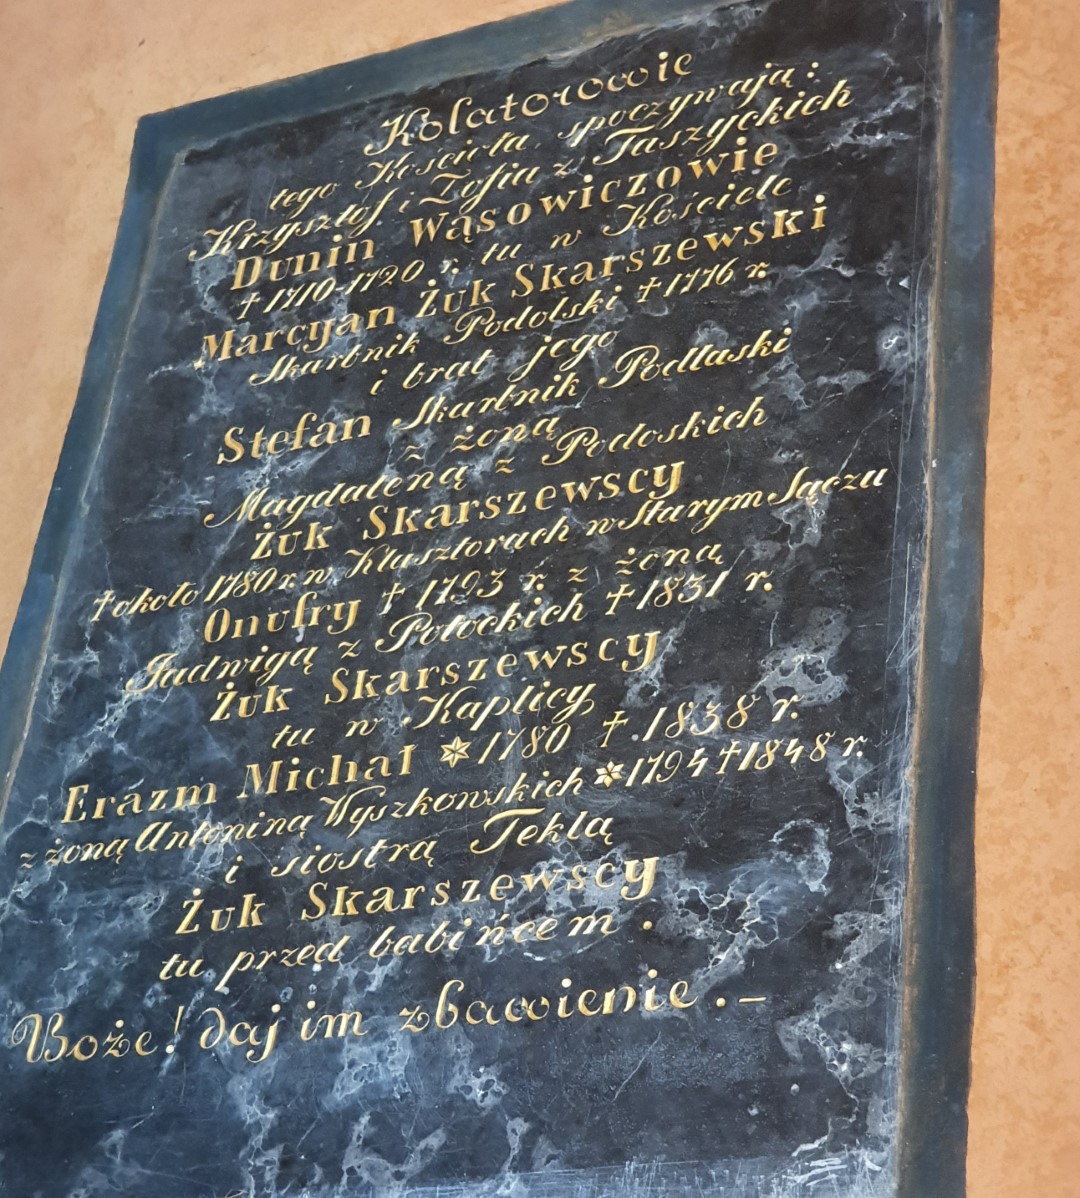 Kolatorowie
tego Kościoła, spoczywają:
Krzysztof i Zofia z Taszyckich
Dunin Wąsowiczowie
† 1710-1720 r. tu w Kościele
Marcyan Żuk Skarszewski
Skarbnik Podolski † 1776 r.
i brat jego
Stefan Skarbnik Podlaski
z żoną
Magdaleną z Podoskich
Żuk Skarszewscy
† około 1780 r. w Klasztorach w Starym Sączu
Onufry † 1793 r. z żoną
Jadwigą z Potockich † 1831 r.
Żuk Skarszewscy
tu w Kaplicy,
Erazm Michał * 1780 † 1838 r.
z żoną Antoniną Wyszkowskich * 1794 † 1848 r.
i siostrą Teklą
Żuk Skarszewscy
tu przed babińcem.
Boże! daj im zbawienie. –